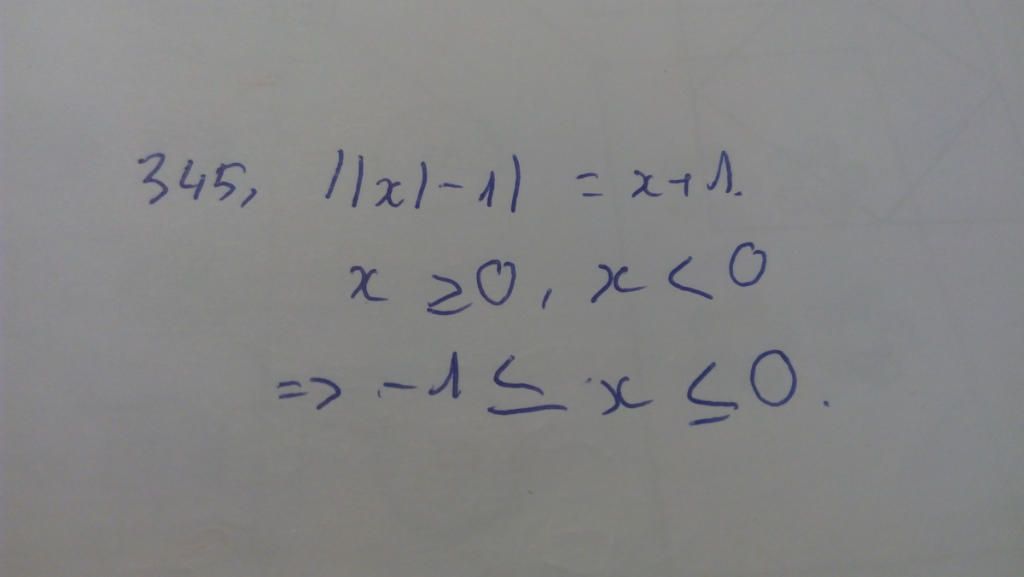 345, ||x|-1| = x+1.
x ≥ 0, x < 0
=> -1 ≤ x ≤ 0.